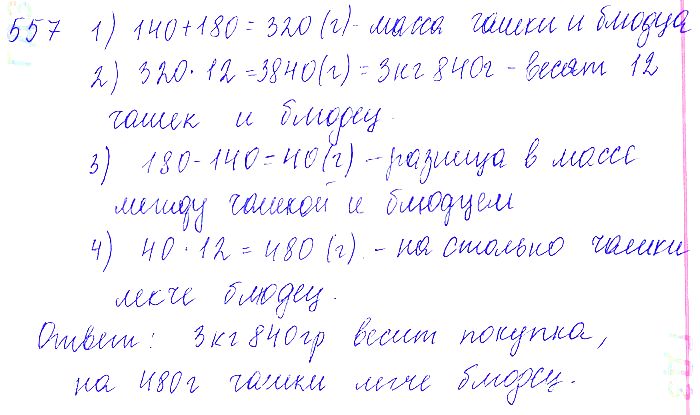 557 1) 140+180=320(г)- масса чашки и блюдца
2) 320·12=3840(г)=3кг 840г - весят 12
чашек и блюдец.
3) 180-140=40(г) - разница в массе
между чашкой и блюдцем
4) 40·12=480(г). - на столько чашки
легче блюдец.
Ответ: 3кг 840гр весит покупка,
на 480г чашки легче блюдец.